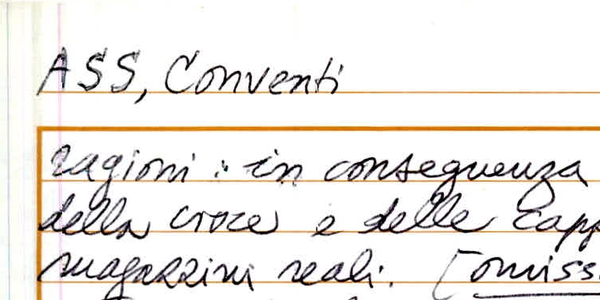 ASS, Conventi
ragioni: in conseguenza
della croce e delle Capp
magazzini reali. [omiss